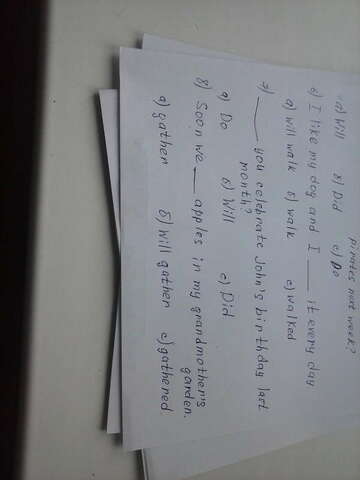 pirates next week?
a) Will в) Did c) Do
6) I like my dog and I ___ it every day
a) will walk б) walk c) walked
7) ___ you celebrate John's birthday last
month?
a) Do б) Will c) Did
8) Soon we ___ apples in my grandmother's
garden.
a) gather б) will gather c) gathered